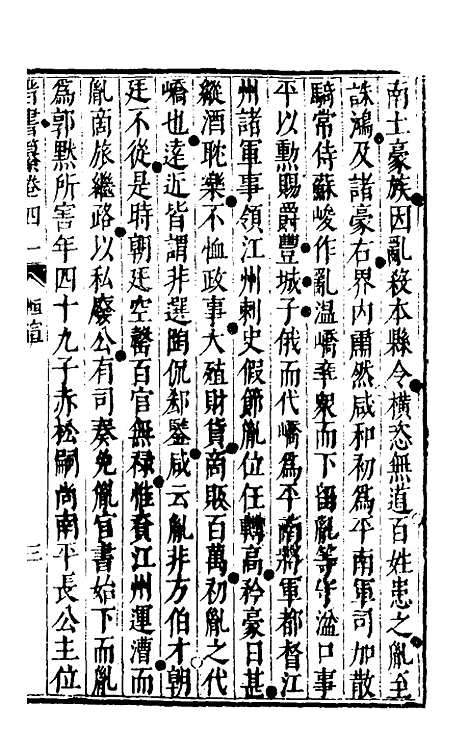 南土豪族因亂殺本縣令橫恣無道百姓患之胤至
誅鴻及諸豪右界內肅然咸和初為平南軍司加散
騎常侍蘇峻作亂溫嶠率衆而下留胤等守湓口事
平以勳賜爵豐城子俄而代嶠為平南將軍都督江
州諸軍事領江州刺史假節胤位任轉高矜豪日甚
縱酒耽樂不恤政事大殖財貨商販百萬初胤之代
嶠也遠近皆謂非選陶侃郄鑒咸云胤非方伯才朝
廷不從是時朝廷空罄百官無祿惟資江州運漕而
胤商旅繼路以私廢公有司奏免胤官書始下而胤
為郭默所害年四十九子赤松嗣尚南平長公主位
晉書纂卷四十
三